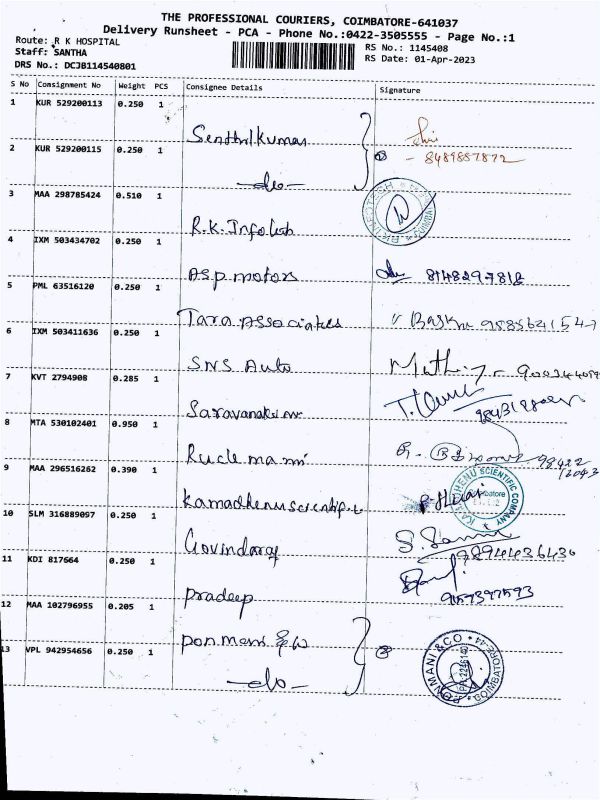 THE PROFESSIONAL COURIERS, COIMBATORE-641037
Delivery Runsheet - PCA - Phone No.:0422-3505555 - Page No.:1
Route: R K HOSPITAL
Staff: SANTHA
DRS No.: DCJB114540801
RS No.: 1145408
RS Date: 01-Apr-2023
S No Consignment No Weight PCS Consignee Details Signature
1 KUR 529200113 0.250 1
Senthilkumar
2 KUR 529200115 0.250 1
8489857872
-do-
3 MAA 298785424 0.510 1
R.K. Infotech
4 IXM 503434702 0.250 1
ASP motors 8148297818
5 PML 63516120 0.250 1
Tara Associates
6 IXM 503411636 0.250 1
SNS Auto
7 KVT 2794908 0.285 1
Saravanakumar
8 MTA 530102401 0.950 1
9 MAA 296516262 0.390 1
Kamadhenu scientific
10 SLM 316889097 0.250 1
Govindaraj
9894436430
11 KDI 817664 0.250 1
pradeep
12 MAA 102796955 0.205 1
ponmani & co
13 VPL 942954656 0.250 1
-do-
PONMANI & CO
COIMBATORE-44